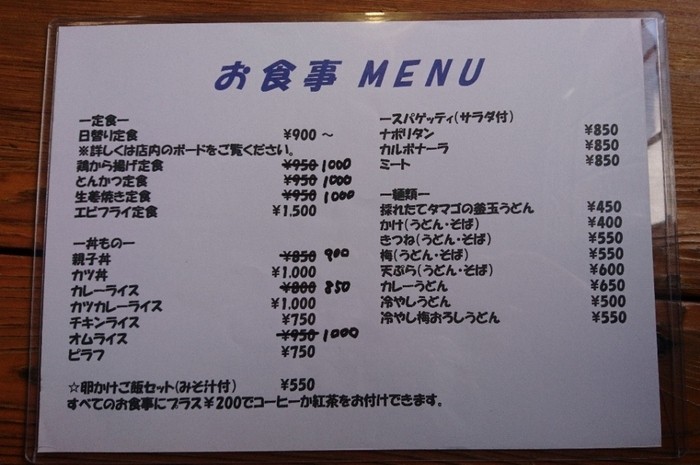 お食事 MENU
ー定食ー
日替り定食 ¥900 ～
※詳しくは店内のボードをご覧ください。
鶏から揚げ定食 ¥950 1000
とんかつ定食 ¥950 1000
生姜焼き定食 ¥950 1000
エビフライ定食 ¥1,500
ー丼ものー
親子丼 ¥850 900
カツ丼 ¥1,000
カレーライス ¥800 850
カツカレーライス ¥1,000
チキンライス ¥750
オムライス ¥950 1000
ピラフ ¥750
☆卵かけご飯セット(みそ汁付) ¥550
すべてのお食事にプラス¥200でコーヒーか紅茶をお付けできます。
ースパゲッティ(サラダ付)
ナポリタン ¥850
カルボナーラ ¥850
ミート ¥850
ー麺類ー
採れたてタマゴの釜玉うどん ¥450
かけ(うどん・そば) ¥400
きつね(うどん・そば) ¥550
梅(うどん・そば) ¥550
天ぷら(うどん・そば) ¥600
カレーうどん ¥650
冷やしうどん ¥500
冷やし梅おろしうどん ¥550